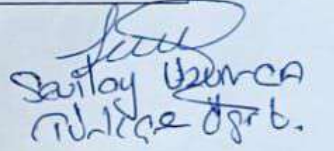 Sevilay Uzunca
Türkçe Öğrt.